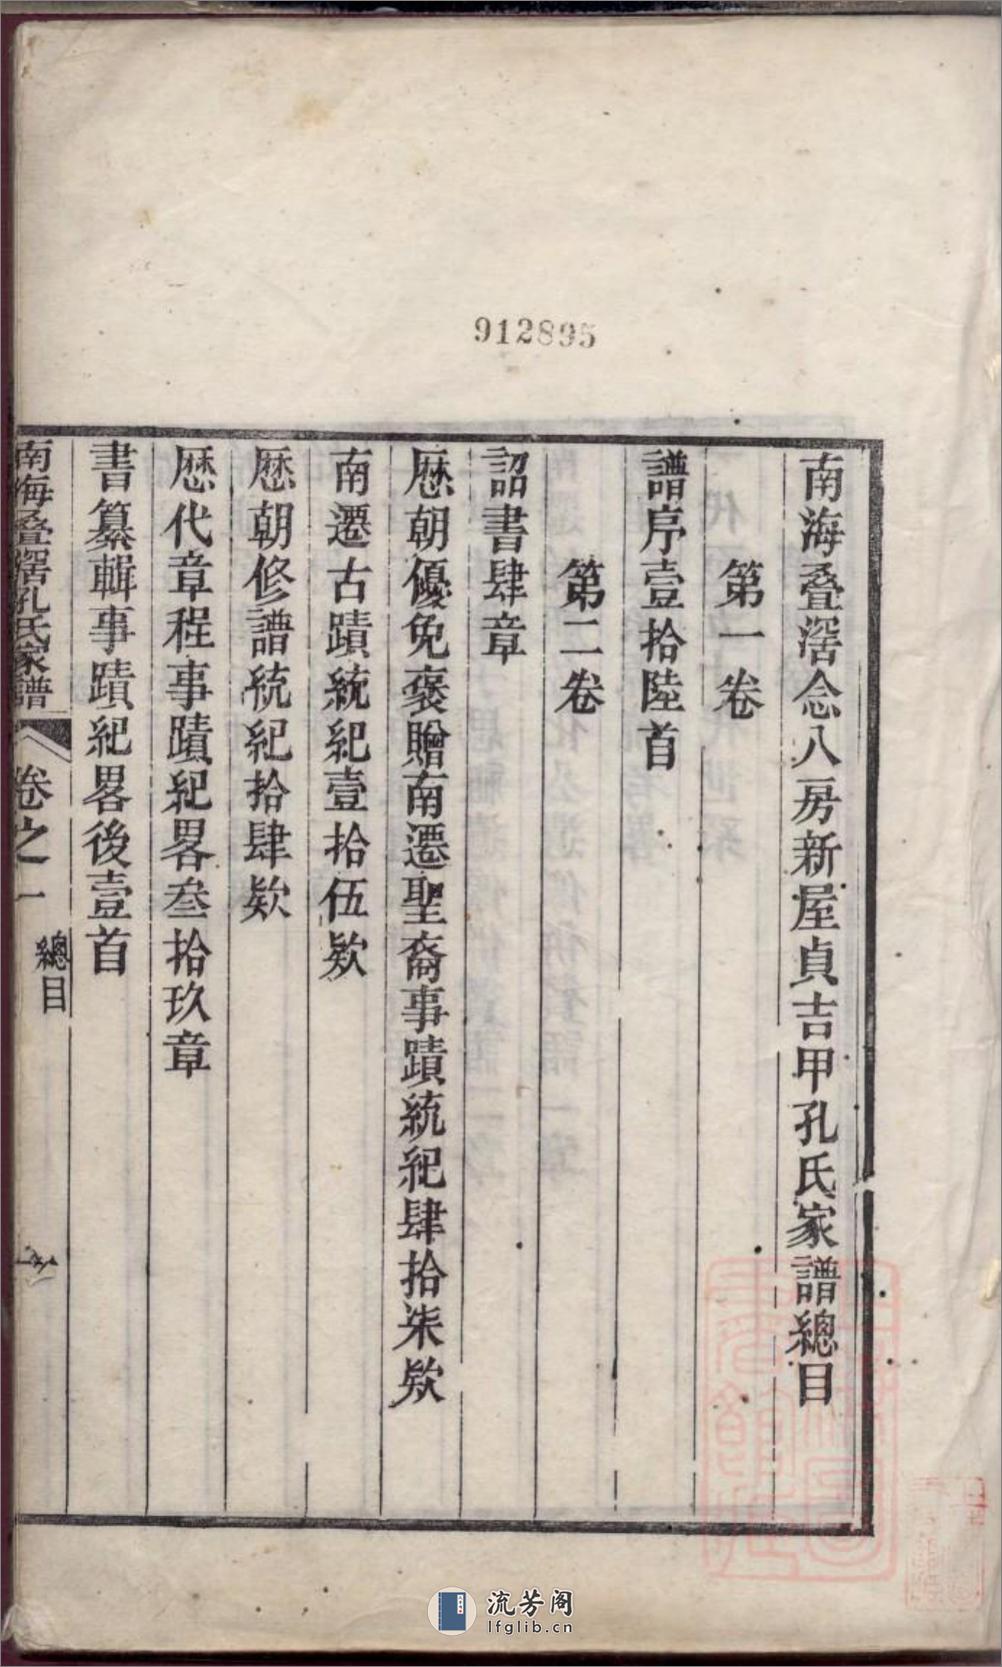 912895
南海叠滘念八房新屋貞吉甲孔氏家譜總目
第一卷
譜序壹拾陸首
第二卷
詔書肆章
歴朝優免褒贈南遷聖裔事蹟統紀肆拾柒欵
南遷古蹟統紀壹拾伍欵
歴朝修譜統紀拾肆欵
歴代章程事蹟紀畧叁拾玖章
書纂輯事蹟紀畧後壹首
南海叠滘孔氏家譜
卷之一
總目
流芳阁
lfglib.cn